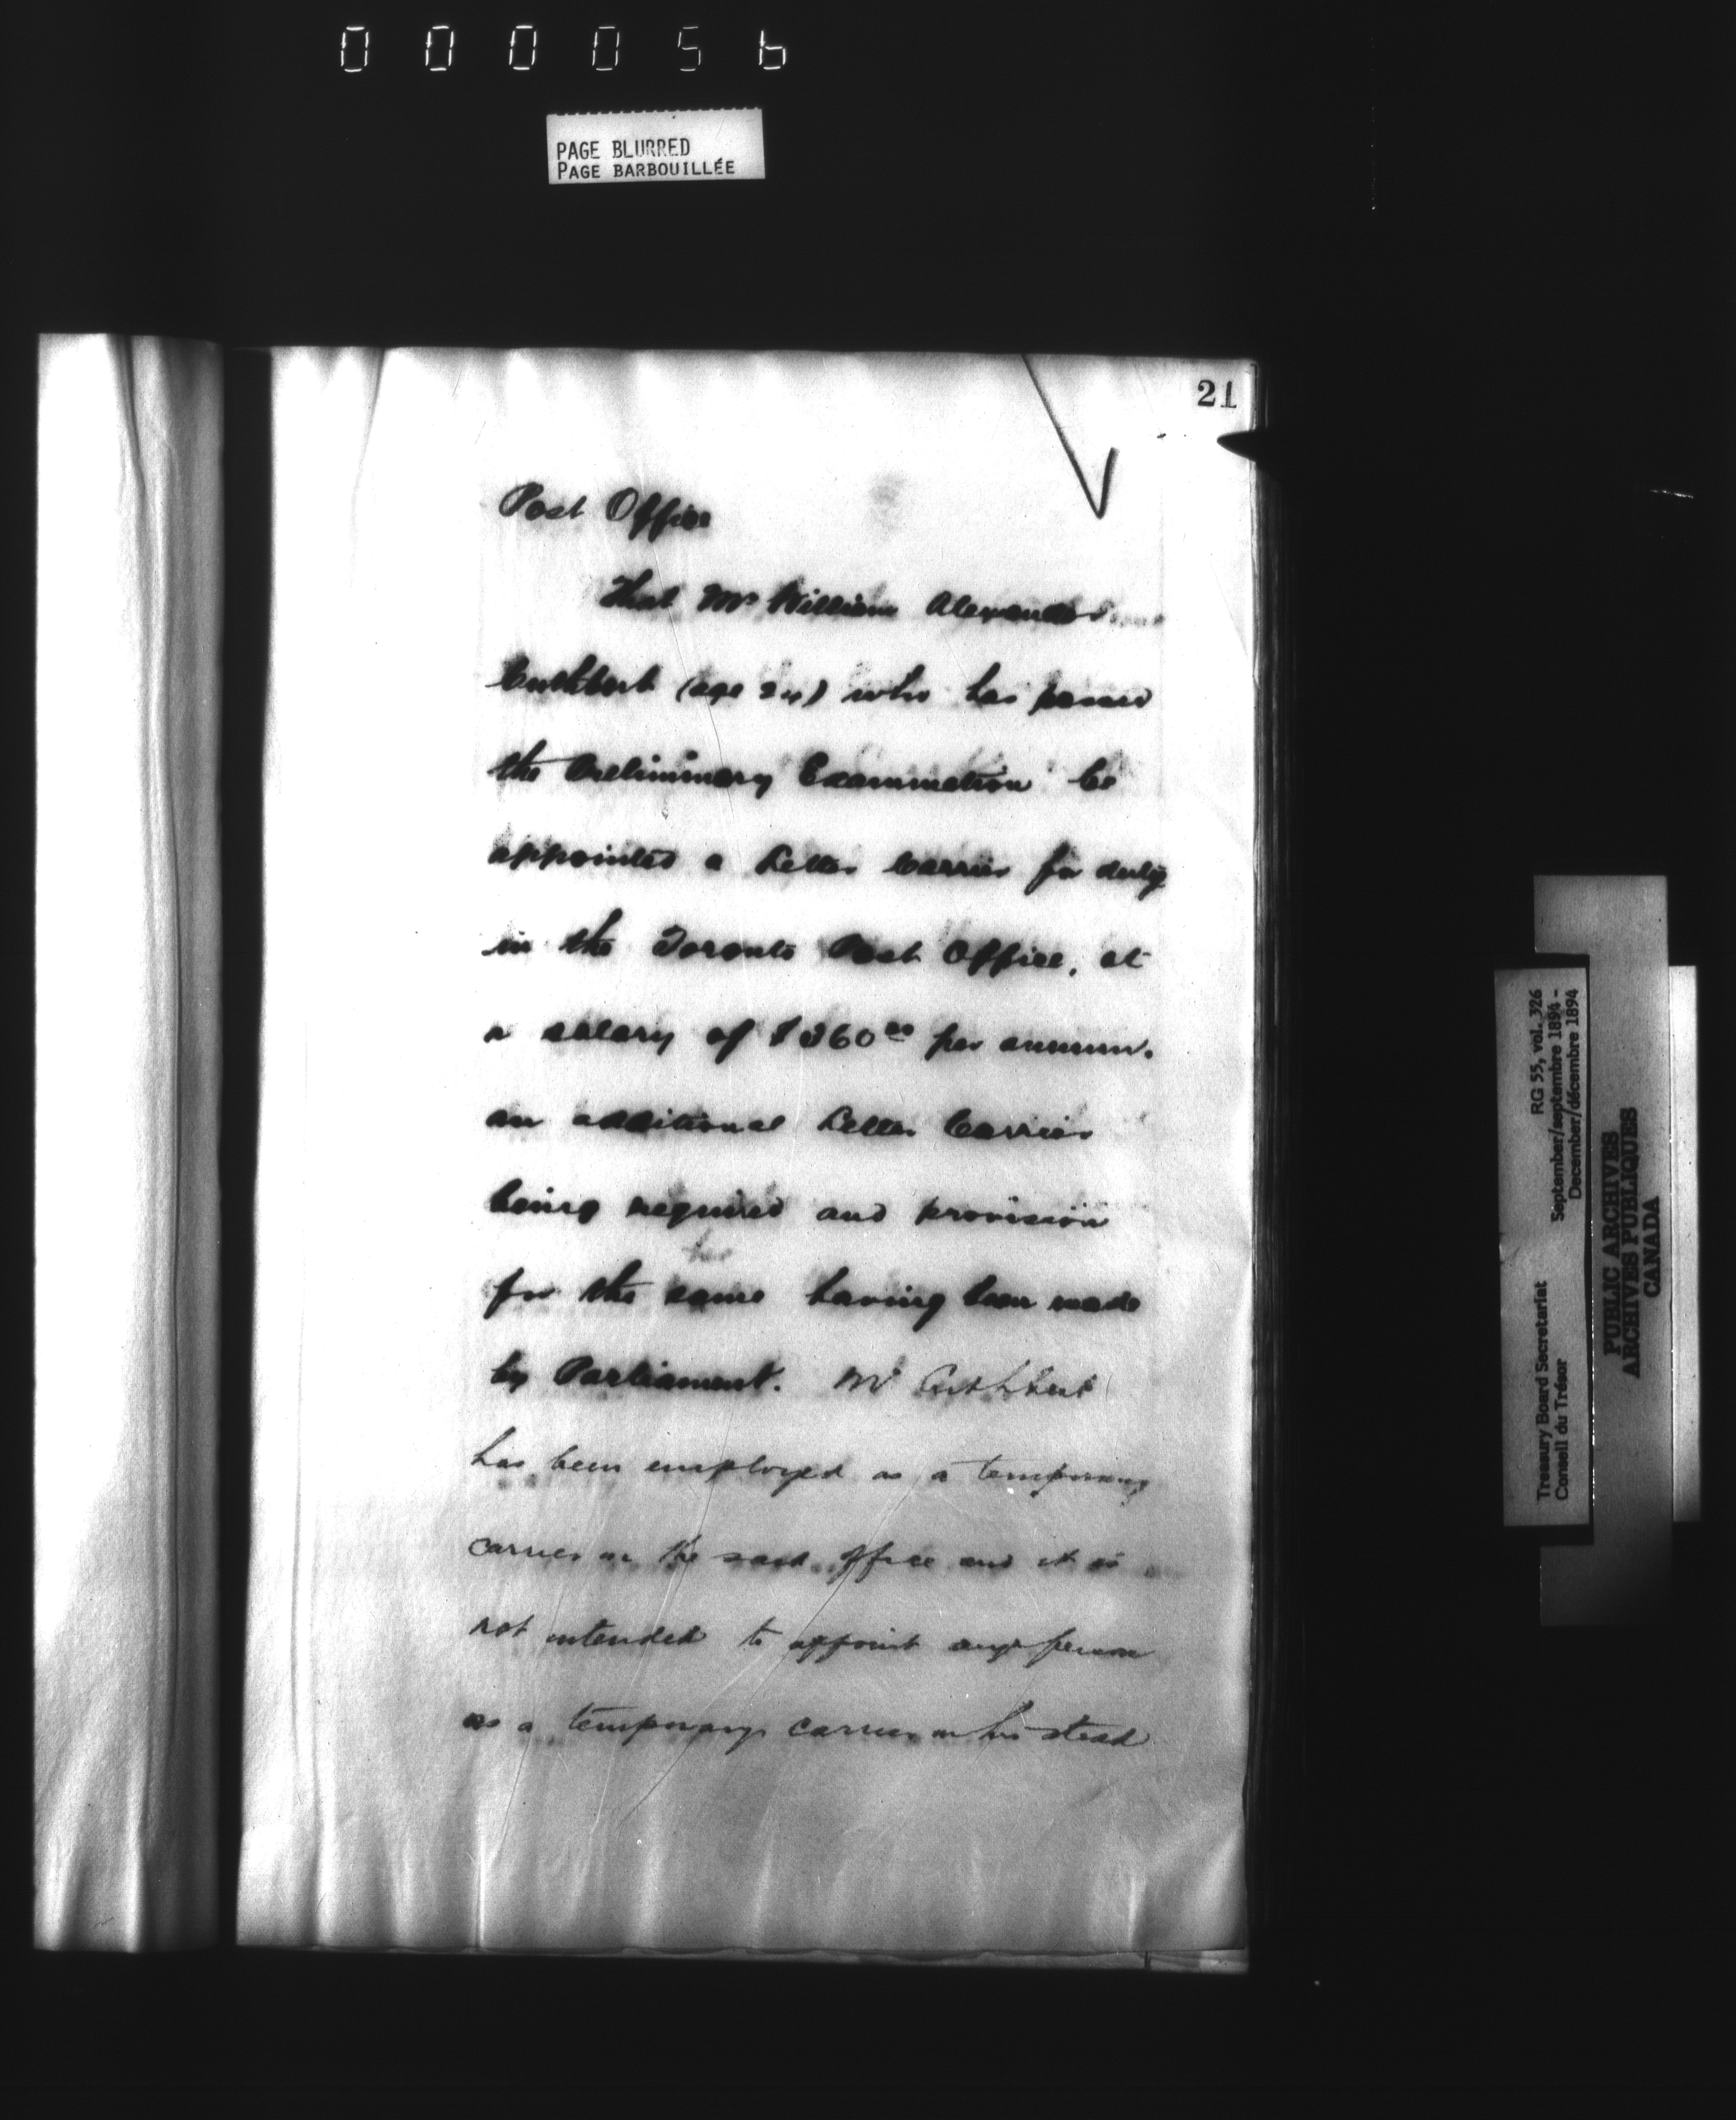 000056
PAGE BLURRED
PAGE BARBOUILLÉE
21
Post Office
That Mr William Alexander
Cuthbert (age 24) who has passed
the Preliminary Examination be
appointed a Letter Carrier for duty
in the Toronto Post Office, at
a salary of $360 00 per annum.
an additional Letter Carrier
being required and provision
for the same having been made
by Parliament. Mr Cuthbert
has been employed as a temporary
carrier in the said office and it is
not intended to appoint any person
as a temporary carrier in his stead
Treasury Board Secretariat RG 55, vol. 326
Conseil du Trésor September/septembre 1894 -
December/décembre 1894
PUBLIC ARCHIVES
ARCHIVES PUBLIQUES
CANADA